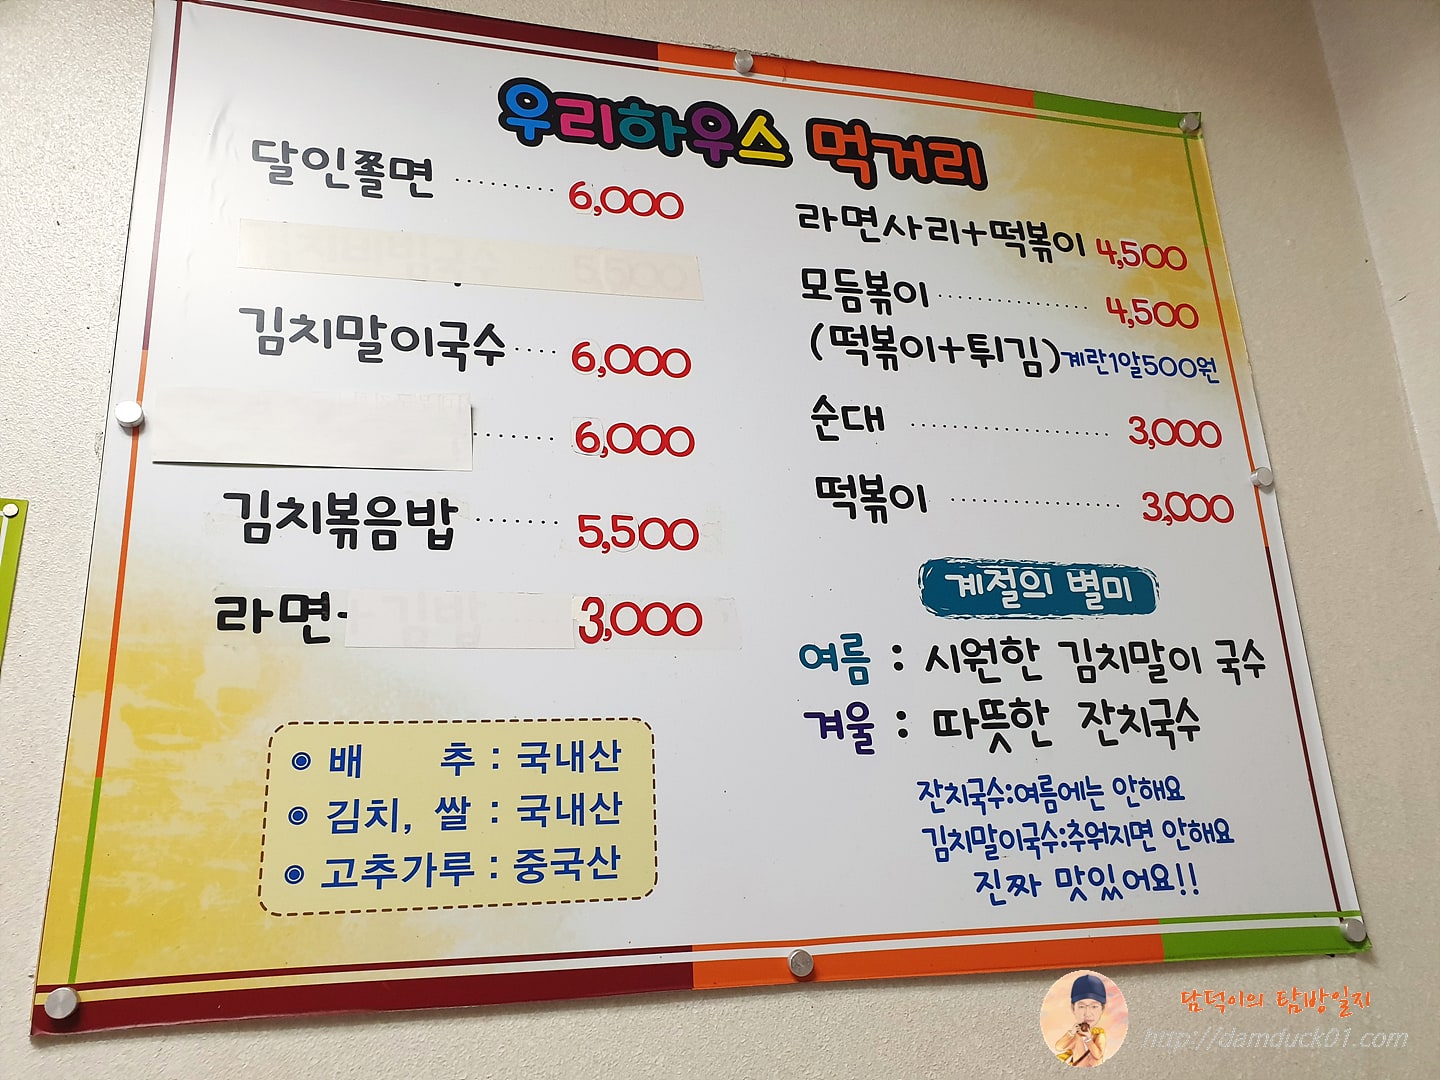 우리하우스 먹거리
달인쫄면 ········· 6,000
김치말이국수 ···· 6,000
······ 6,000
김치볶음밥 ······ 5,500
라면 3,000
라면사리+떡볶이 4,500
모듬볶이 ·············· 4,500
(떡볶이+튀김)계란1알500원
순대 ··················· 3,000
떡볶이 ················ 3,000
계절의 별미
여름 : 시원한 김치말이 국수
겨울 : 따뜻한 잔치국수
잔치국수:여름에는 안해요
김치말이국수:추워지면 안해요
진짜 맛있어요!!
◉ 배 추 : 국내산
◉ 김치, 쌀 : 국내산
◉ 고추가루 : 중국산
담덕이의 탐방일지
http://damduck01.com